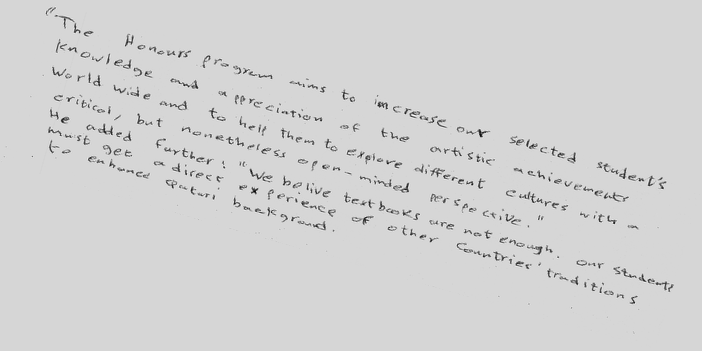 "The Honours program aims to increase our selected student's
knowledge and appreciation of the artistic achievements
World wide and to hell them to explore different cultures with a
critical, but nonetheless open-minded perspective."
He added further: "We belive textbooks are not enough. our students
must get a direct experience of other Countries' traditions
to enhance Qatari background.